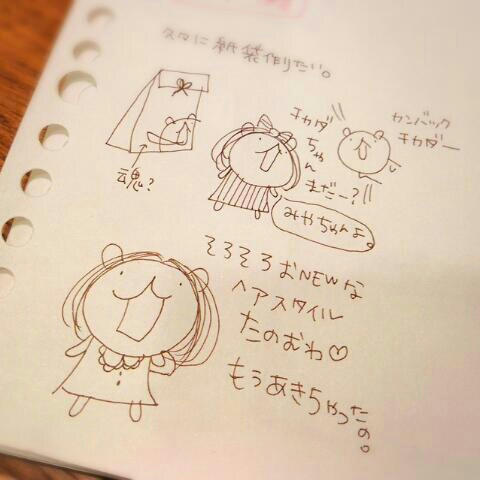 久々に紙袋作りたい。
魂?
チカダ
ちゃん
まだー?
カンバック
チカダー
みやちゃんよ。
そろそろおNEWな
ヘアスタイル
たのむわ♡
もうあきちゃったの。